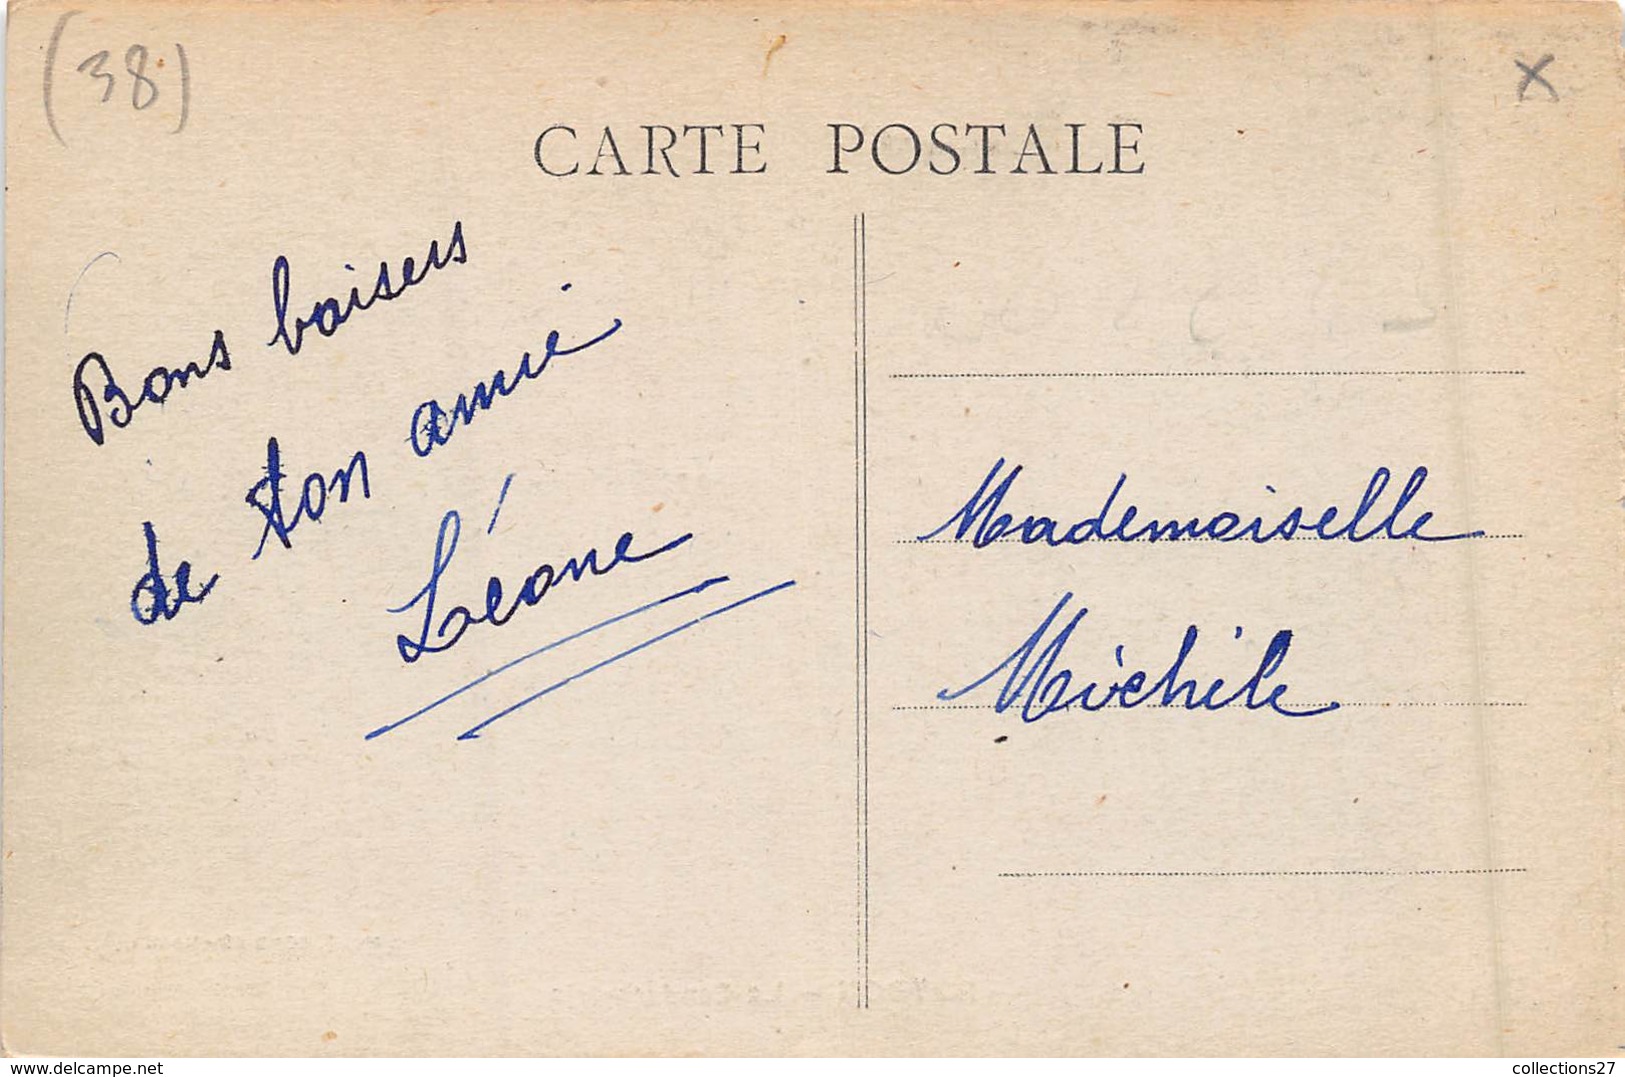 (38)
X
CARTE POSTALE
Bons baisers
de ton amie
Léone
Mademoiselle
Michile
www.delcampe.net
collections27